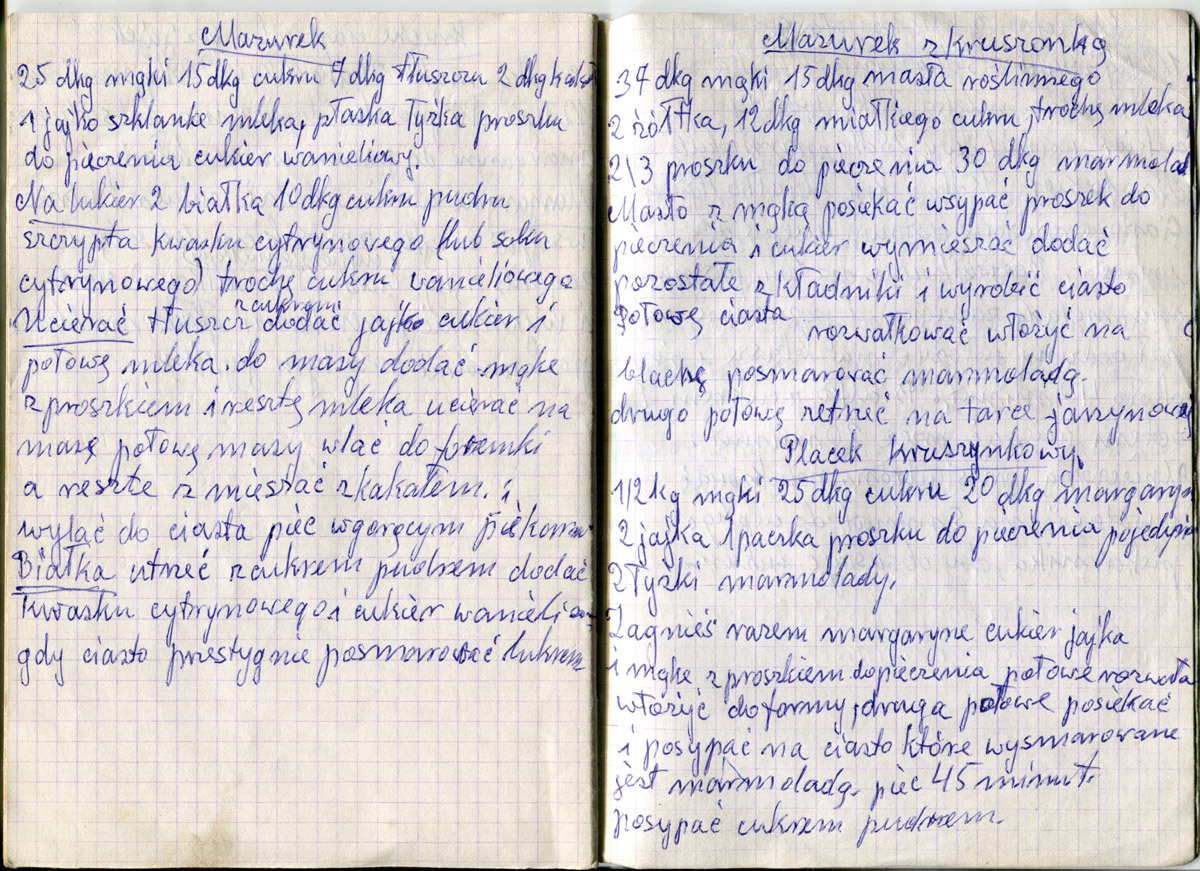 Mazurek
25 dkg mąki 15 dkg cukru 7 dkg tłuszczu 2 dkg kakał
1 jajko szklanke mleka, płaska łyżka proszku
do pieczenia cukier wanieliowy.
Na lukier 2 białka 10 dkg cukru pudru
szczypta kwasku cytrynowego (lub soku
cytrynowego) trochę cukru wanieliowego
z cukrem
Ucierać tłuszcz dodać jajko cukier i
połowę mleka. do masy dodać mąke
z proszkiem i resztę mleka ucierać na
masę połowę masy wlać do foremki
a reszte z mieszać z kakałem. i
wylać do ciasta piec w gorącym piekarn
Białka utrzeć z cukrem pudrem dodać
kwasku cytrynowego i cukier wanieliowy
gdy ciasto przestygnie posmarować lukrem
Mazurek z kruszonką
37 dkg mąki 15 dkg masła roślinnego
2 żółtka, 12 dkg miałkiego cukru, trochę mleka
2\3 proszku do pieczenia 30 dkg marmolad
Masło z mąką posiekać wsypać proszek do
pieczenia i cukier wymieszać dodać
pozostałe z kładniki i wyrobić ciasto
połowę ciasta rozwałkować włożyć na
blachę posmarować marmoladą.
drugo połowę zetrzeć na tarce jarzynowej
Placek kruszynkowy
1/2 kg mąki 25 dkg cukru 20 dkg margary
2 jajka 1 paczka proszku do pieczenia pojedyńcz
2 łyżki marmolady.
Zagnieś razem margaryne cukier jajka
i mąke z proszkiem do pieczenia połowe rozwała
włożyć do formy, druga połowe posiekać
i posypać na ciasto które wysmarowane
jest marmoladą. piec 45 minut.
posypać cukrem pudrem.